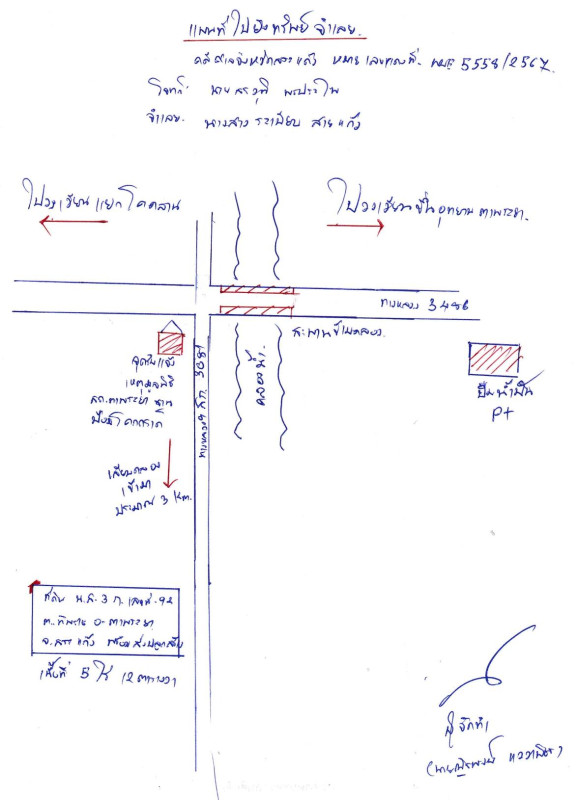 แผนที่ไปยังทรัพย์จำเลย
คดีศาลจังหวัดสระแก้ว หมายเลขแดงที่ ผบE 5558/2567
โจทก์ นาย
จำเลย นางสาว ระเบียบ สายแก้ว
ไปวงเวียน แยกโคคลาน
ไปวงเวียนขึ้นอุทยานตาพระยา
ทางหลวง 3486
สะพานข้ามคลอง
คลองน้ำ
ทางหลวง สก. 3081
จุดรับแจ้ง
เหตุมูลนิธิ
สก. ตาพระยา
ปั๊มน้ำมัน
PT
เลียบคลอง
เข้ามา
ประมาณ 3 km.
ที่ดิน น.ส. 3 ก. เลขที่ 92
ต. ทัพราช อ. ตาพระยา
จ. สระแก้ว พร้อมสิ่งปลูกสร้าง
เนื้อที่ 5 ไร่ 12 ตารางวา
ผู้จัดทำ